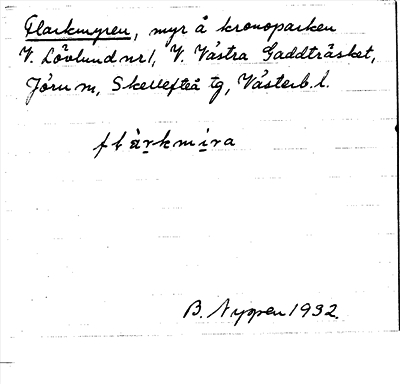 Flarkmyren, myr å kronoparken
V. Lövlund nr 1, V. Västra Gaddträsket,
Jörn sn, Skellefteå tg, Västerb. l.
flàrkmìra
B. Nygren 1932.